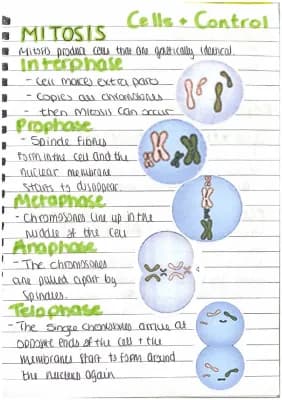 Cells + Control
MITOSIS
Mitosis produce cells that are genetically identical.
Interphase
- Cell makes extra parts
- Copies all chromosomes
- then mitosis can occur
Prophase
- Spindle fibres
form in the cell and the
nuclear membrane
starts to disappear.
Metaphase
- Chromosomes line up in the
middle of the cell
Anaphase
- The chromosomes
are pulled apart by
spindles.
Telophase
- The single chromosomes arrive at
opposite ends of the cell + the
membranes start to form around
the nucleus again